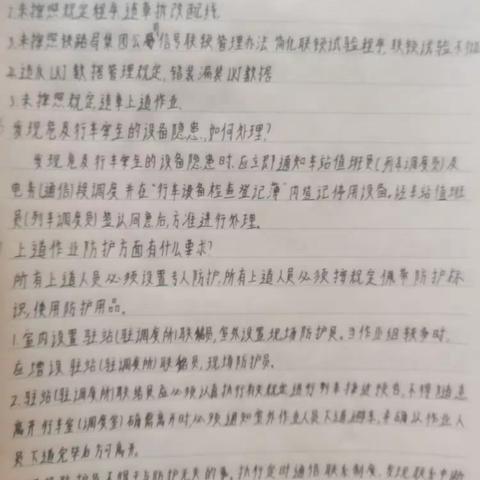 2.未按照规定程序,违章拆改配线
3.未按照铁路局集团公司信号联锁管理办法 简化联锁试验程序,联锁试验不彻底
4.违反LKJ数据管理规定,错装漏装LKJ数据
5.未按照规定,违章上道作业.
发现危及行车安全的设备隐患,如何处理?
发现危及行车安全的设备隐患时,应立即通知车站值班员(列车调度员)及
电务(通信)段调度并在"行车设备检查登记簿"内登记停用设备,经车站值班
员(列车调度员)签认同意后,方准进行处理.
上道作业防护方面有什么要求?
所有上道人员必须设置专人防护,所有上道人员必须按规定佩带防护标
识,使用防护用品。
1.室内设置驻站(驻调度所)联络员,室外设置现场防护员。当作业组较多时,
应增设驻站(驻调度所)联络员,现场防护员.
2.驻站(驻调度所)联络员应必须认真执行有关规定进行列车接近预告,不得随意
离开行车室(调度室)确需离开时,必须通知室外作业人员下道避车,并确认作业人
员下道完毕后方可离开。
防护员不得干与防护无关的事,执行定时通信联系制度,发现联系中断